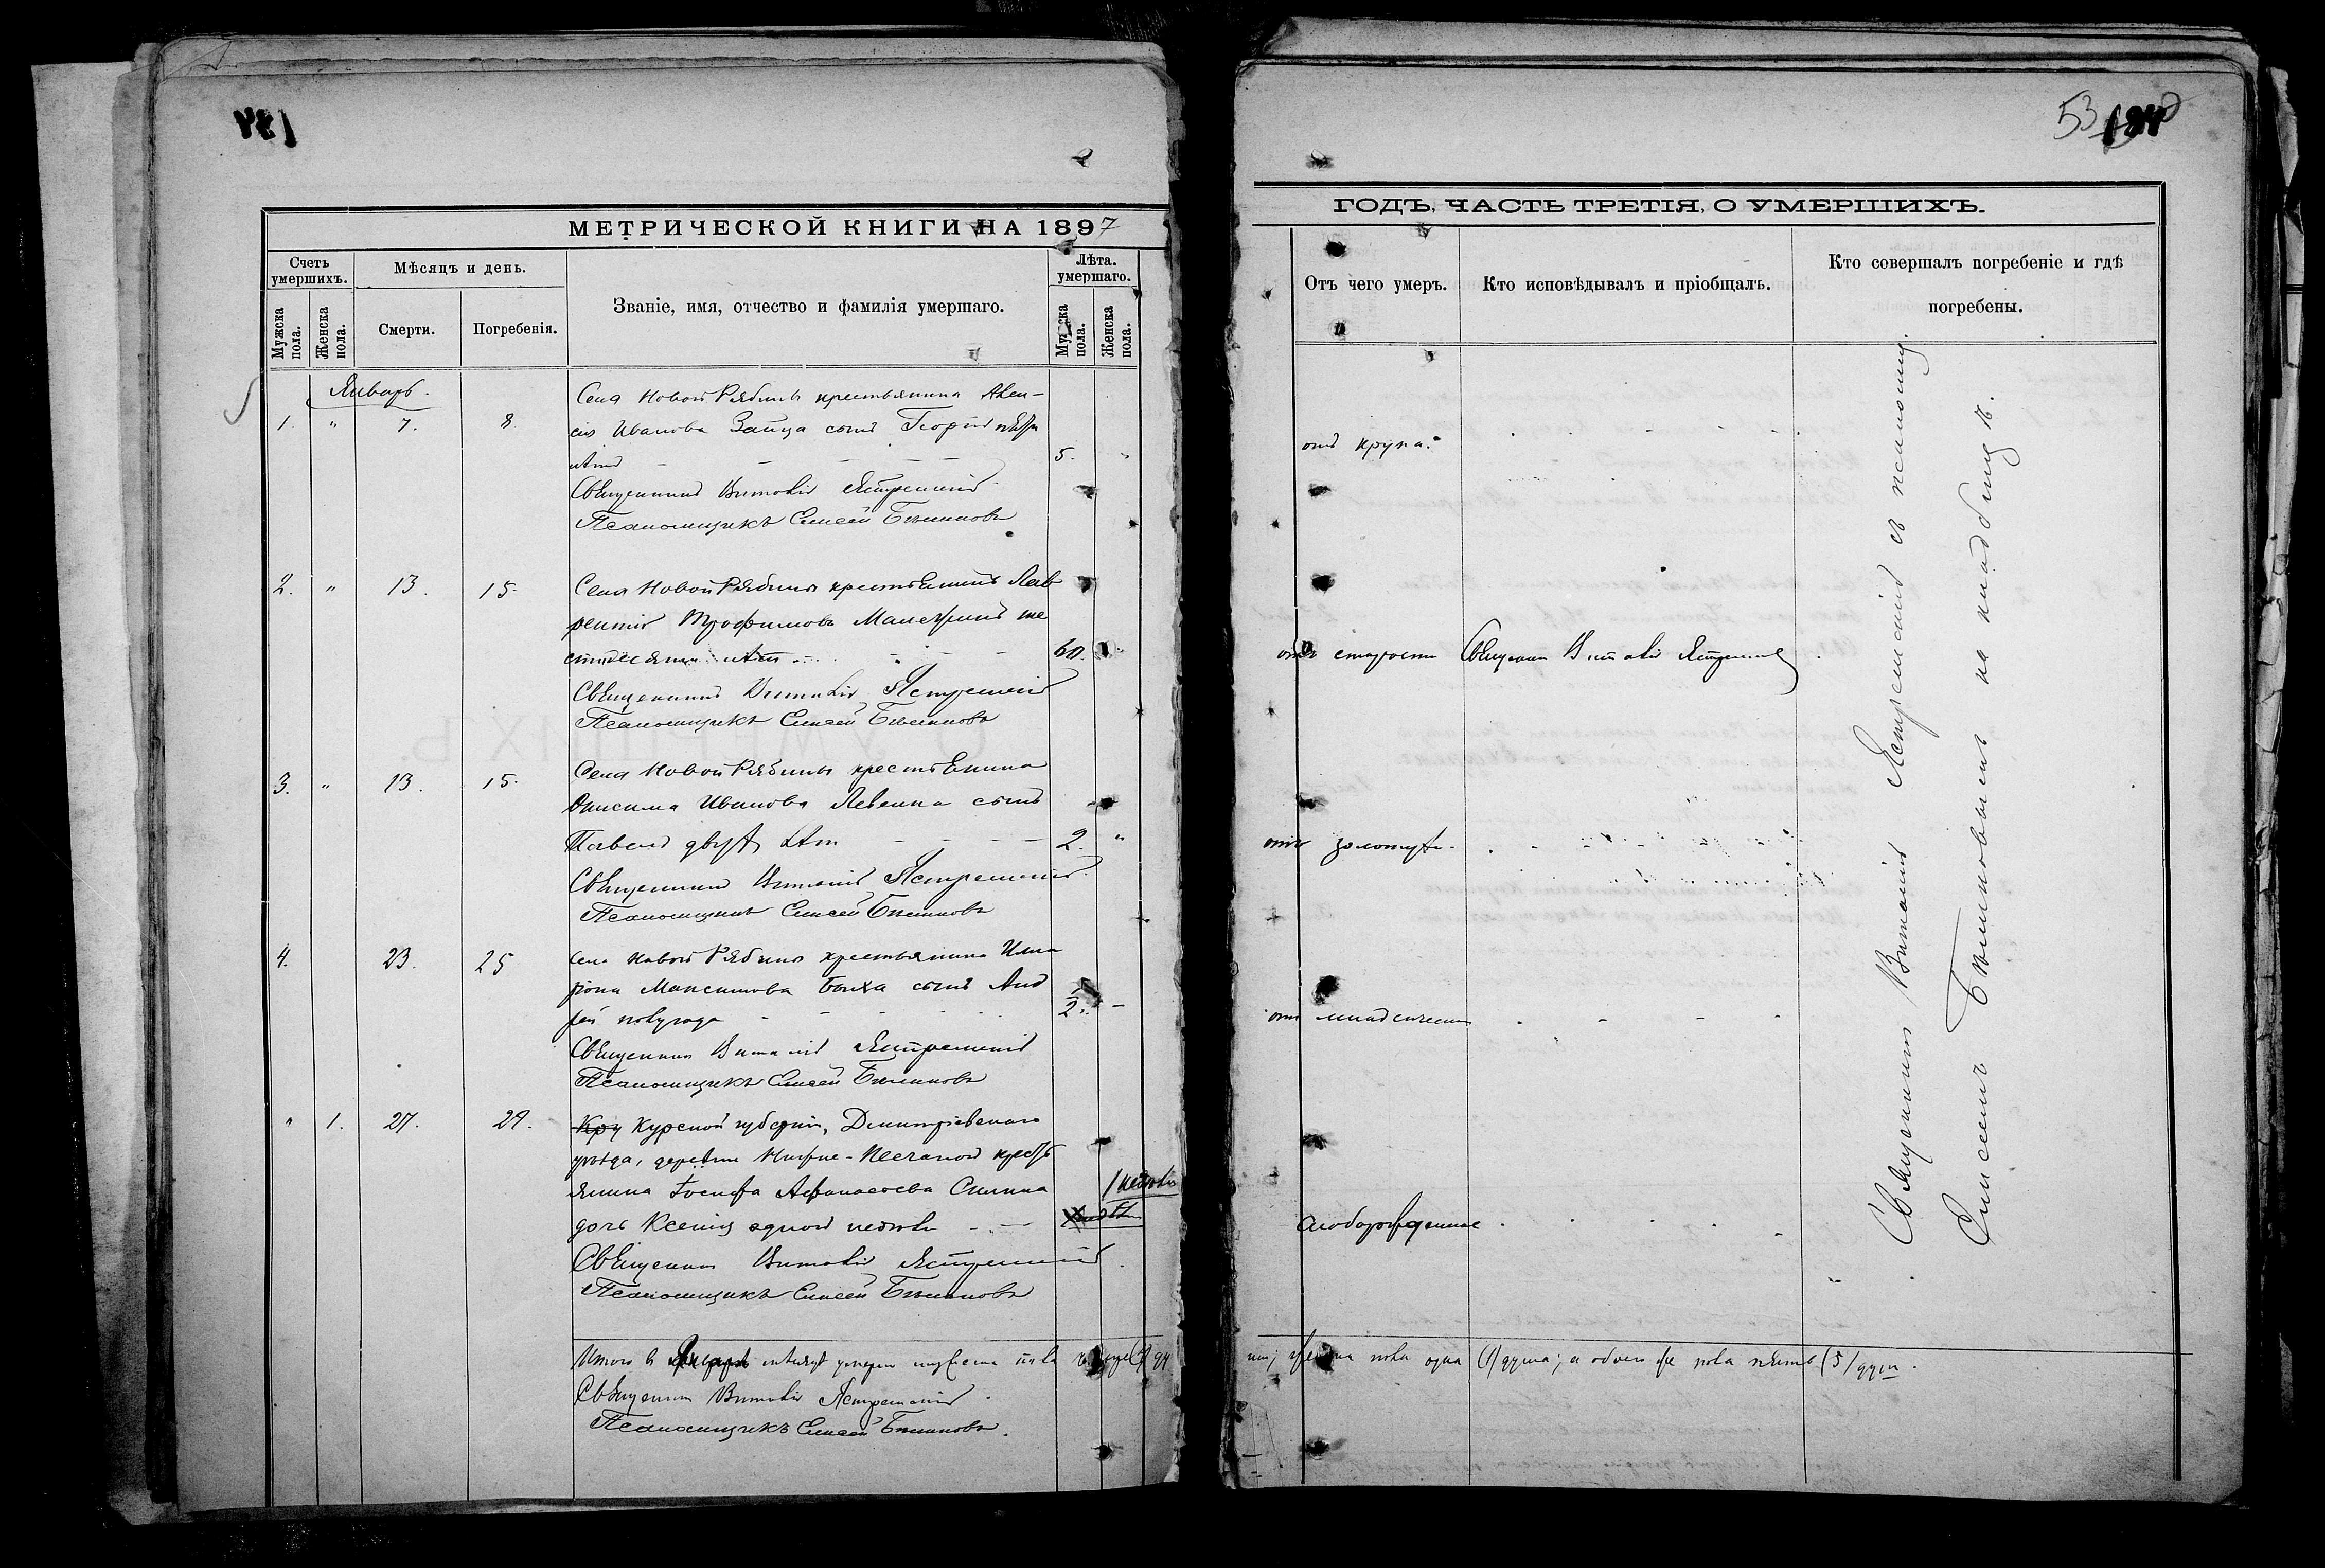 53
МЕТРИЧЕСКОЙ КНИГИ НА 1897
ГОДЪ, ЧАСТЬ ТРЕТІЯ, О УМЕРШИХЪ.
Счетъ умершихъ.
Мѣсяцъ и день.
Званіе, имя, отчество и фамилія умершаго.
Лѣта. умершаго.
Мужска пола.
Женска пола.
Смерти.
Погребенія.
Мужска пола.
Женска пола.
Отъ чего умеръ.
Кто исповѣдывалъ и пріобщалъ.
Кто совершалъ погребеніе и гдѣ погребены.
Январь.
1. " 7. 8.
Села Новой Рябины крестьянина Алек-
сія Иванова Зайца сынъ Георгій пяти
лѣтъ - - - - 5. "
отъ крупа.
Священникъ Виталій Ястремскій
Псаломщикъ Елисей Бѣликовъ
2. " 13. 15.
Села Новой Рябины крестьянинъ Лав
рентій Трофимовъ 
стидесяти лѣтъ 60. "
отъ старости Священ. Виталій Ястремскій
Священникъ Виталій Ястремскій
Псаломщикъ Елисей Бѣликовъ
3. " 13. 15.
Села Новой Рябины крестьянина
Онисима Иванова сынъ
Павелъ двухъ лѣтъ - - - - 2. "
отъ золотухи.
Священникъ Виталій Ястремскій
Псаломщикъ Елисей Бѣликовъ
4. 23. 25
Села Новой Рябины крестьянина Ила
ріона Максимова сынъ Анд
рей полугода 1/2 -
отъ младенческой
Священникъ Виталій Ястремскій
Псаломщикъ Елисей Бѣликовъ
" 1. 27. 29.
Кру Курской губерніи, Дмитріевскаго
уѣзда, деревни Нижне-Песчаной кресть
янина Іосифа Афанасьева
1 недѣли
дочь Ксенія одной недѣли - -
слаборожденные
Священникъ Виталій Ястремскій
Псаломщикъ Елисей Бѣликовъ
Священникъ Виталій Ястремскій съ псаломщ.
Елисеемъ Бѣликовымъ на кладбищѣ.
Итого въ Январѣ мѣсяцѣ умерло мужеска пола
женска пола одна (1) душа; а обоего же пола пять (5) душъ.
Священникъ Виталій Ястремскій
Псаломщикъ Елисей Бѣликовъ.